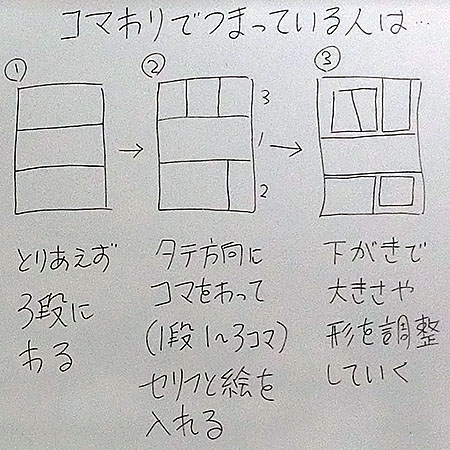 コマわりでつまっている人は…
①
②
③
3
1
2
とりあえず
3段に
わる
タテ方向に
コマをわって
(1段1〜3コマ)
セリフと絵を
入れる
下がきで
大きさや
形を調整
していく